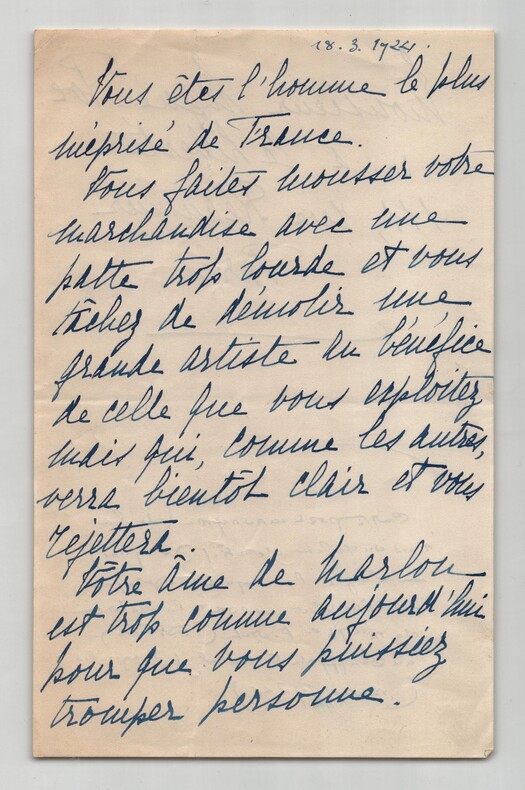 18. 3. 1924.
Vous êtes l'homme le plus
méprisé de France.
Vous faites mousser votre
marchandise avec une
patte trop lourde et vous
tâchez de démolir une
grande artiste au bénéfice
de celle que vous exploitez
mais qui, comme les autres,
verra bientôt clair et vous
rejettera.
Vôtre âme de marlou
est trop connue aujourd'hui
pour que vous puissiez
tromper personne.